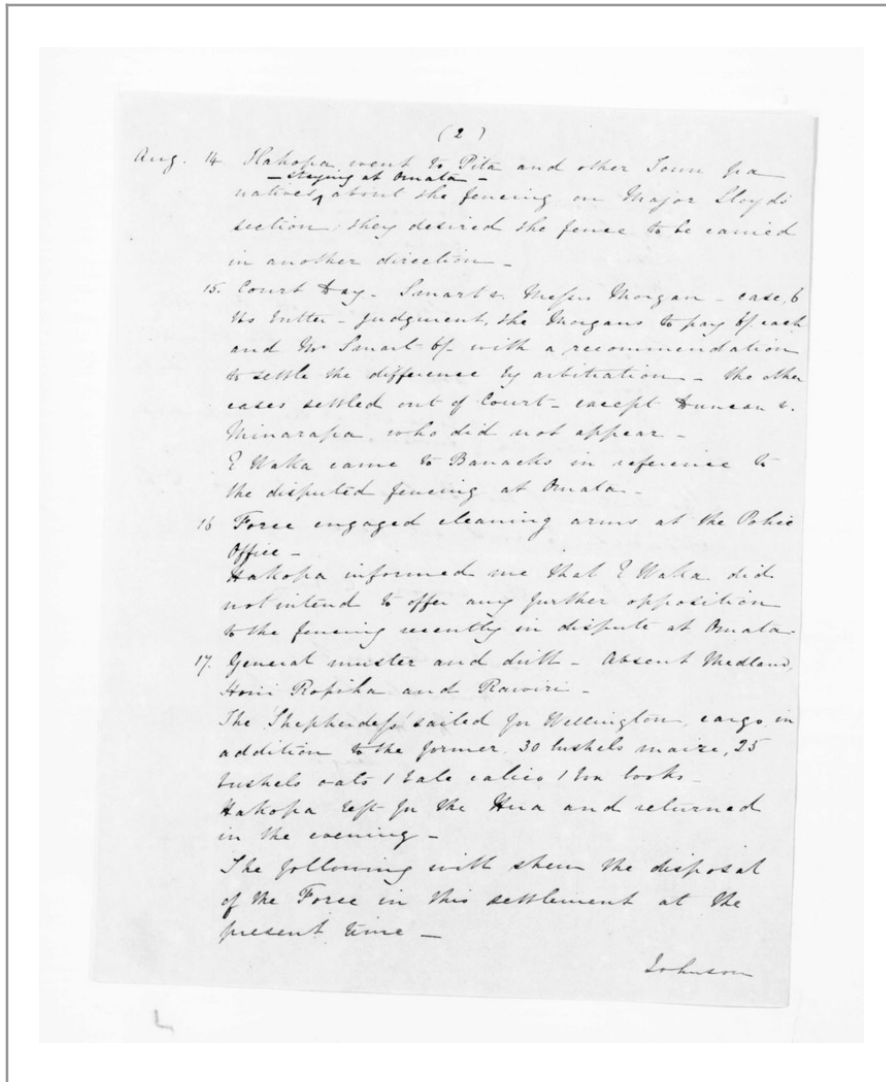 (2)
Aug. 14 Hakopa went to Pita and other Town pa
- staying at Omata -
natives ^ about the fencing on Major Lloyds
section, they desired the fence to be carried
in another direction -
15. Court Day - Smart v. Messrs Morgan - case, 
- Judgment, the Morgans to pay 6/ each
and Mr Smart 6/- with a recommendation
to settle the difference by arbitration - the other
cases settled out of Court - except Duncan v.
Minarapa who did not appear -
E Waka came to Barracks in reference to
the disputed fencing at Omata -
16 Force engaged cleaning arms at the Police
Office -
Hakopa informed me that E Waka did
not intend to offer any further opposition
to the fencing recently in dispute at Omata -
17. General muster and drill - Absent Medland,
Honi Ropiha and Rawiri -
The 'Shepherdess' sailed for Wellington, cargo, in
addition to the former, 30 bushels maize, 25
bushels oats 1 bale calico 1 box books -
Hakopa left for the Hua and returned
in the evening -
The following will shew the disposal
of the Force in this settlement at the
present time -
Johnson